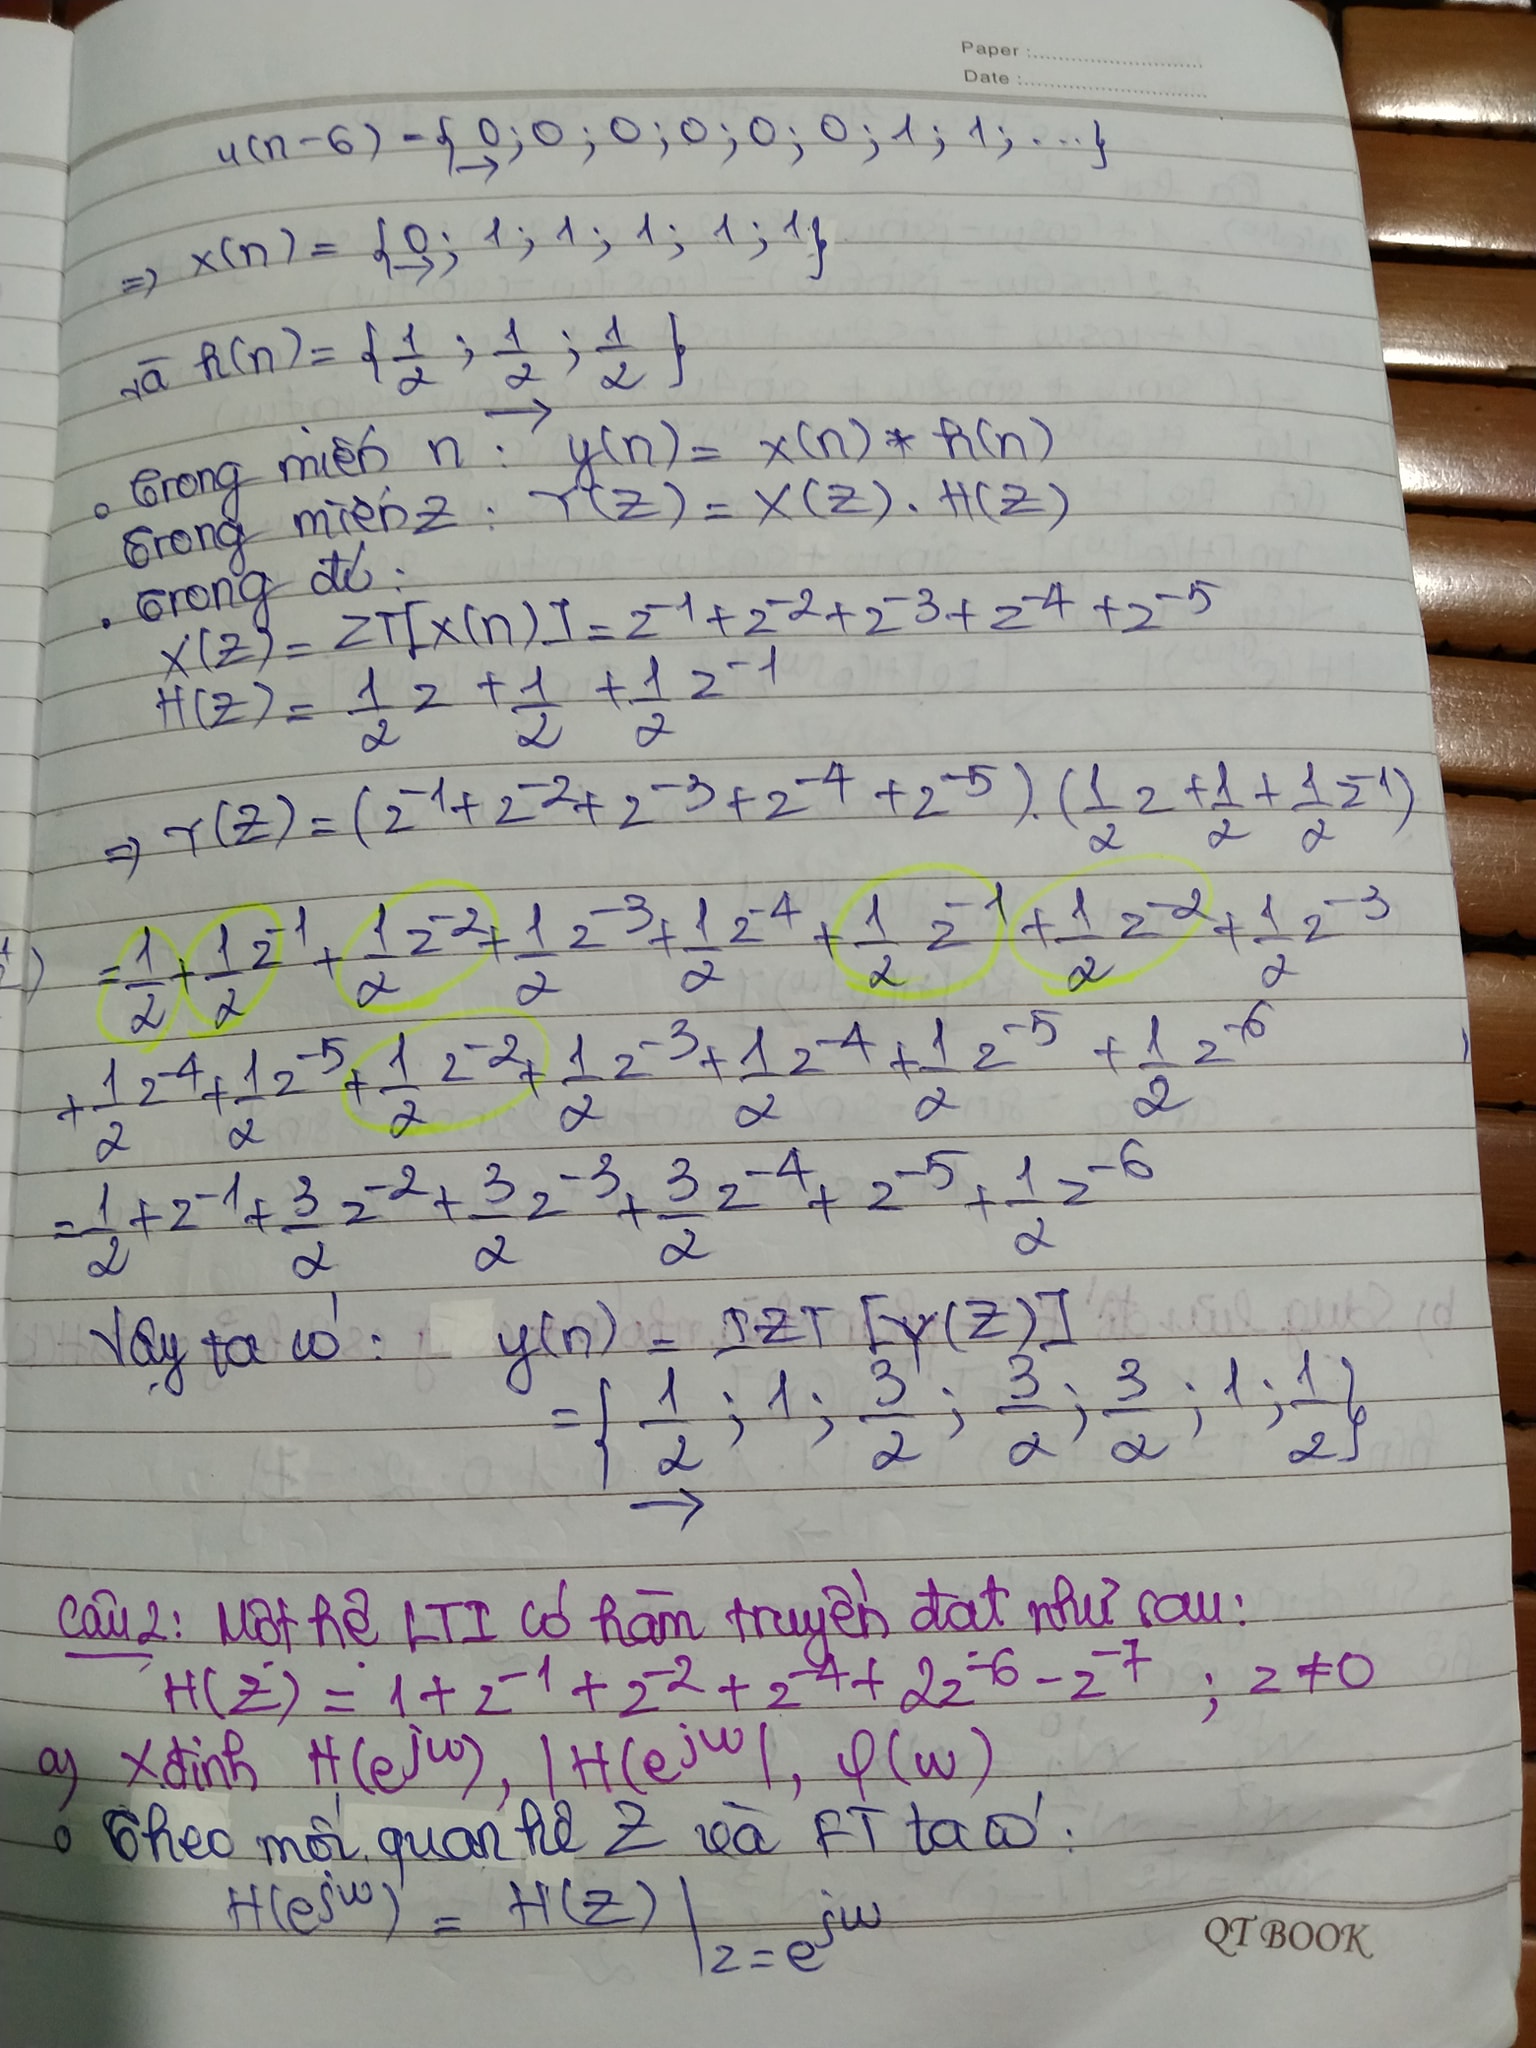 Paper :
Date :
u(n-6) = { 0; 0; 0; 0; 0; 0; 1; 1; ... }
→
=> x(n) = { 0; 1; 1; 1; 1; 1 }
→
và h(n) = { 1/2 ; 1/2 ; 1/2 }
→
. trong miền n : y(n) = x(n) * h(n)
trong miền Z : Y(Z) = X(Z) . H(Z)
. trong đó :
X(Z) = ZT[x(n)] = z⁻¹ + z⁻² + z⁻³ + z⁻⁴ + z⁻⁵
H(Z) = 1/2 z + 1/2 + 1/2 z⁻¹
=> Y(Z) = (z⁻¹ + z⁻² + z⁻³ + z⁻⁴ + z⁻⁵) . (1/2 z + 1/2 + 1/2 z⁻¹)
= 1/2 + 1/2 z⁻¹ + 1/2 z⁻² + 1/2 z⁻³ + 1/2 z⁻⁴ + 1/2 z⁻¹ + 1/2 z⁻² + 1/2 z⁻³
+ 1/2 z⁻⁴ + 1/2 z⁻⁵ + 1/2 z⁻² + 1/2 z⁻³ + 1/2 z⁻⁴ + 1/2 z⁻⁵ + 1/2 z⁻⁶
= 1/2 + z⁻¹ + 3/2 z⁻² + 3/2 z⁻³ + 3/2 z⁻⁴ + z⁻⁵ + 1/2 z⁻⁶
Vậy ta có : y(n) = IZT [Y(Z)]
= { 1/2 ; 1 ; 3/2 ; 3/2 ; 3/2 ; 1 ; 1/2 }
→
Câu 2: Một hệ LTI có hàm truyền đạt như sau:
H(Z) = 1 + z⁻¹ + z⁻² + z⁻⁴ + 2z⁻⁶ - z⁻⁷ ; z ≠ 0
a) Xđịnh H(e^jω), |H(e^jω|, φ(ω)
. Theo mối quan hệ Z và FT ta có :
H(e^jω) = H(Z) | z = e^jω
QT BOOK